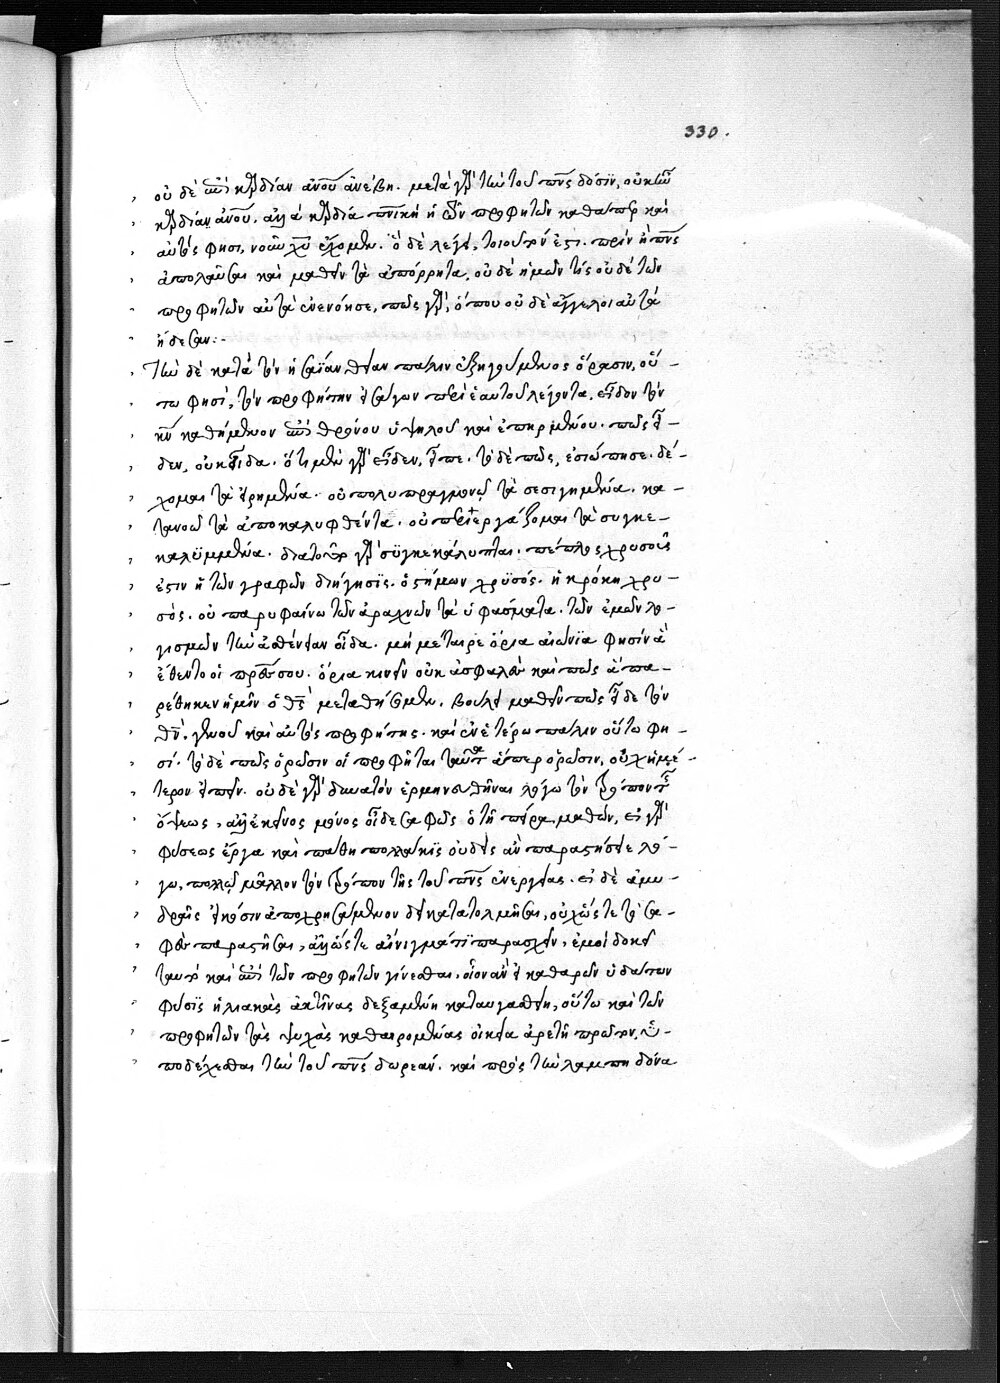 330.
οὐ δὲ ἐπὶ καρδίαν ἀνου ἀνέβη. μετὰ γὰρ τὴν τοῦ πνς δόσιν, οὐκ ἐπὶ
καρδίαν ἀνου. ἀλλὰ καρδία πνικὴ ἡ τῶν προφητῶν καθάπερ καὶ
αὐτός φησι, νοῦν χυ ἔχομεν. ὃ δὲ λέγει, τοιοῦτόν ἐστι. πρὶν ἢ πνς
ἀπολαῦσαι καὶ μαθεῖν τὰ ἀπόρρητα, οὐδὲ ἡμῶν τίς οὐδὲ τῶν
προφητῶν αὐτὰ ἐνενόησε, πῶς γὰρ, ὅπου οὐδὲ ἄγγελοι αὐτὰ
ἤδεσαν:-
Τὴν δὲ κατὰ τὸν ἡσαΐαν θείαν πάλιν ἐξηγούμενος ὅρασιν, οὕ-
τω φησί, τὸν προφήτην εἰσάγων περὶ ἑαυτοῦ λέγοντα. εἶδον τὸν
κν καθήμενον ἐπὶ θρόνου ὑψηλοῦ καὶ ἐπηρμένου. πῶς εἶ-
δεν, οὐκ οἶδα. ὅτι μὲν γὰρ εἶδεν, εἶπε. τὸ δὲ πῶς, ἐσιώπησε. δέ-
χομαι τὰ εἰρημένα. οὐ πολυπραγμονῶ τὰ σεσιγημένα. κα-
τανοῶ τὰ ἀποκαλυφθέντα. οὐ περιεργάζομαι τὰ συγκε-
καλυμμένα. διατοῦτο γὰρ συγκεκάλυπται. πέπλος χρυσοῦς
ἐστιν ἡ τῶν γραφῶν διήγησις. ὁ στήμων χρυσός. ἡ κρόκη χρυ-
σός. οὐ παρυφαίνω τῶν ἀραχνῶν τὰ ὑφάσματα. τῶν ἐμῶν λο-
γισμῶν τὴν ἀσθένειαν οἶδα. μὴ μέταιρε ὅρια αἰώνια φησὶν ἃ
ἔθεντο οἱ πρες σου. ὅρια κινεῖν οὐκ ἀσφαλὲς καὶ πῶς ἅπερ
ἡμῖν ὁ θς μεταθήσομεν. βούλει μαθεῖν πῶς εἶδε τὸν
θν, γενοῦ καὶ αὐτὸς προφήτης. καὶ ἐν ἑτέρω πάλιν οὕτω φη-
σί. τὸ δὲ πῶς ὁρῶσιν οἱ προφῆται ταῦτα ἅπερ ὁρῶσιν, οὐχ ἡμέ-
τερον εἰπεῖν. οὐδὲ γὰρ δυνατὸν ἑρμηνευθῆναι λόγω τὸν τρόπον τῆς
ὄψεως, ἀλλ' ἐκεῖνος μόνος οἶδε σαφῶς ὁ τῆ πείρα μαθών, εἰ γὰρ
φύσεως ἔργα καὶ πάθη πολλάκις οὐδεὶς ἂν παραστήσειε λό-
γω, πολλῷ μᾶλλον τὸν τρόπον τῆς τοῦ πνς ἐνεργείας. εἰ δὲ ἀμυ-
δραῖς εἰκόσιν ἀποχρησάμενον δεῖ κατατολμῆσαι, οὐχ ὥστε τὸ σα-
φὲς παραστῆσαι, ἀλλ' ὥστε αἴνιγμά τι παρασχεῖν, ἐμοὶ δοκεῖ
ταυτὸ καὶ ἐπὶ τῶν προφητῶν γίνεσθαι, οἷον ἂν εἰ καθαρῶν ὑδάτων
φύσις ἡλιακὰς ἀκτῖνας δεξαμένη καταυγασθείη, οὕτω καὶ τῶν
προφητῶν τὰς ψυχὰς καθαιρομένας οἰκεία ἀρετῆ πρῶτον, ὑ-
ποδέχεσθαι τὴν τοῦ πνς δωρεάν. καὶ πρὸς τὴν λαμπηδόνα